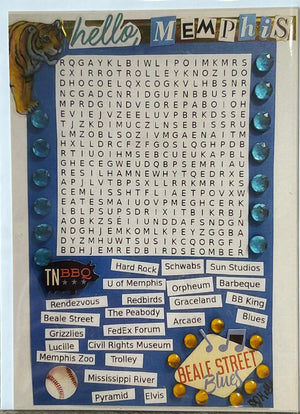 hello, MEMPHIS
RQGAYKLBIWLIPOIMKMRS
CXIRROTROLLEYKNOZIDO
DHOCOELQXCOGKVLHBSRP
NCGADCNRIDGUFNBBUSFP
MPRDGINDVEOREPABOIOH
EVIEJVZEELUVPBRKDSSE
TJZKDIMUCZLNSEBISSRU
LMZOBLSOZIVMGAENAITM
HXLLDRCFZFGOSLQGHPDB
RTIUOIHMSEBCUEUKAPBL
GHECEGWEUDQBPSEMRIAU
RESILHAMNEWHYTQEDRXE
APJLVTBPSXLLRRKMRIKS
CEMLISSHTFLIAETPOVXW
EATESMAIUOVPMEGHCERR
LBLPSUPSDRIXITBIKRBJ
AOBKZSEIIUNDDAFSNDGN
DDGHJEMKOMLKPEYZGGBA
DYZMHUWTSUSIKCQORGFJ
BDHJEMREDBIRDSEOMBER
Hard Rock Schwabs Sun Studios
TN BBQ
U of Memphis Orpheum Barbeque
Rendezvous Redbirds Graceland BB King
Beale Street The Peabody Arcade Blues
Grizzlies FedEx Forum
Lucille Civil Rights Museum
Memphis Zoo Trolley
BEALE STREET
Blues
Mississippi River
Pyramid Elvis